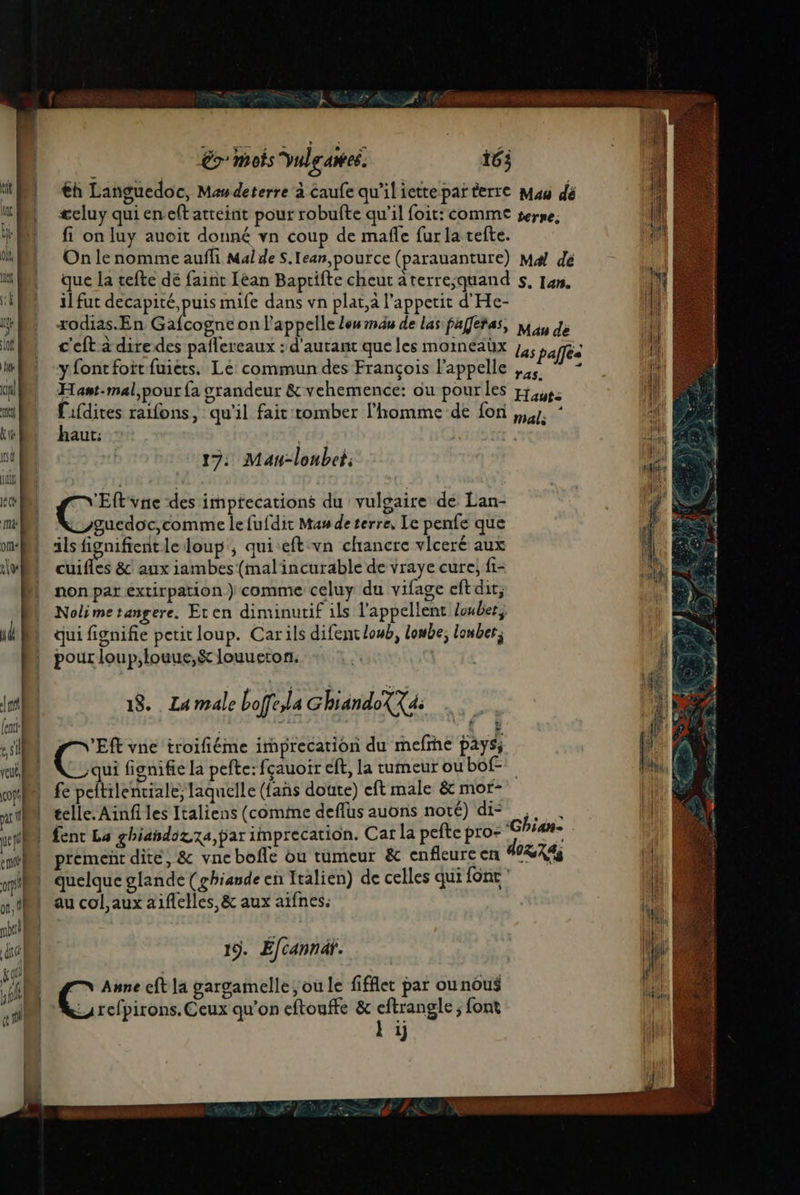 & mots vulgaires. 163
en Languedoc, Mau de terre à cauſe qu'il iette par terre
celuy qui en eſt atteint pour robuſte qu'il ſoit: comme
ſi on luy auoit donné vn coup de maſſe ſur la teſte.
On le nomme auſſi Mal de S. Iean, pource (parauanture)
que la teſte de ſainct Iean Baptiſte cheut à terre, quand
il fut decapité, puis miſe dans vn plat, à l'appetit d'He-
rodias. En Gaſcogne on l'appelle lou máu de las paſſeras,
c'eſt à dire des paſſereaux : d'autant que les moineaux
y ſont fort ſuiets. Le commun des François l'appelle
Haut-mal, pour ſa grandeur & vehemence: ou pour les
ſuſdites raiſons, qu'il fait tomber l'homme de ſon
haut.
Mau de
terre.
Mal de
S. Ian.
Mau de
las paſſe-
ras.
Haut-
mal.
17. Mau-loubet.
C'Eſt vne des imprecations du vulgaire de Lan-
guedoc, comme le ſuſdit Mau de terre. Ie penſe que
ils ſignifient le loup, qui eſt vn chancre vlceré aux
cuiſſes & aux iambes (mal incurable de vraye cure, ſi-
non par extirpation) comme celuy du viſage eſt dit,
Noli me tangere. Et en diminutif ils l'appellent loubet,
qui ſignifie petit loup. Car ils diſent loub, loube, loubet,
pour loup, louue, & louueton.
18. La male boſſe, la Ghiandozza.
C'Eſt vne troiſiéme imprecation du meſme pays,
qui ſignifie la peſte: ſçauoir eſt, la tumeur ou boſ-
ſe peſtilentiale, laquelle (ſans doute) eſt male & mor-
telle. Ainſi les Italiens (comme deſſus auons noté) di-
ſent La ghiandozza, par imprecation. Car la peſte pro-
prement dite, & vne boſſe ou tumeur & enfleure en
quelque glande (ghiande en Italien) de celles qui ſont
au col, aux aiſſelles, & aux aiſnes.
Ghian-
dozza.
19. Eſcannat.
CAnne eſt la gargamelle, ou le ſifflet par ou nous
reſpirons. Ceux qu'on eſtouffe & eſtrangle, ſont
l ij